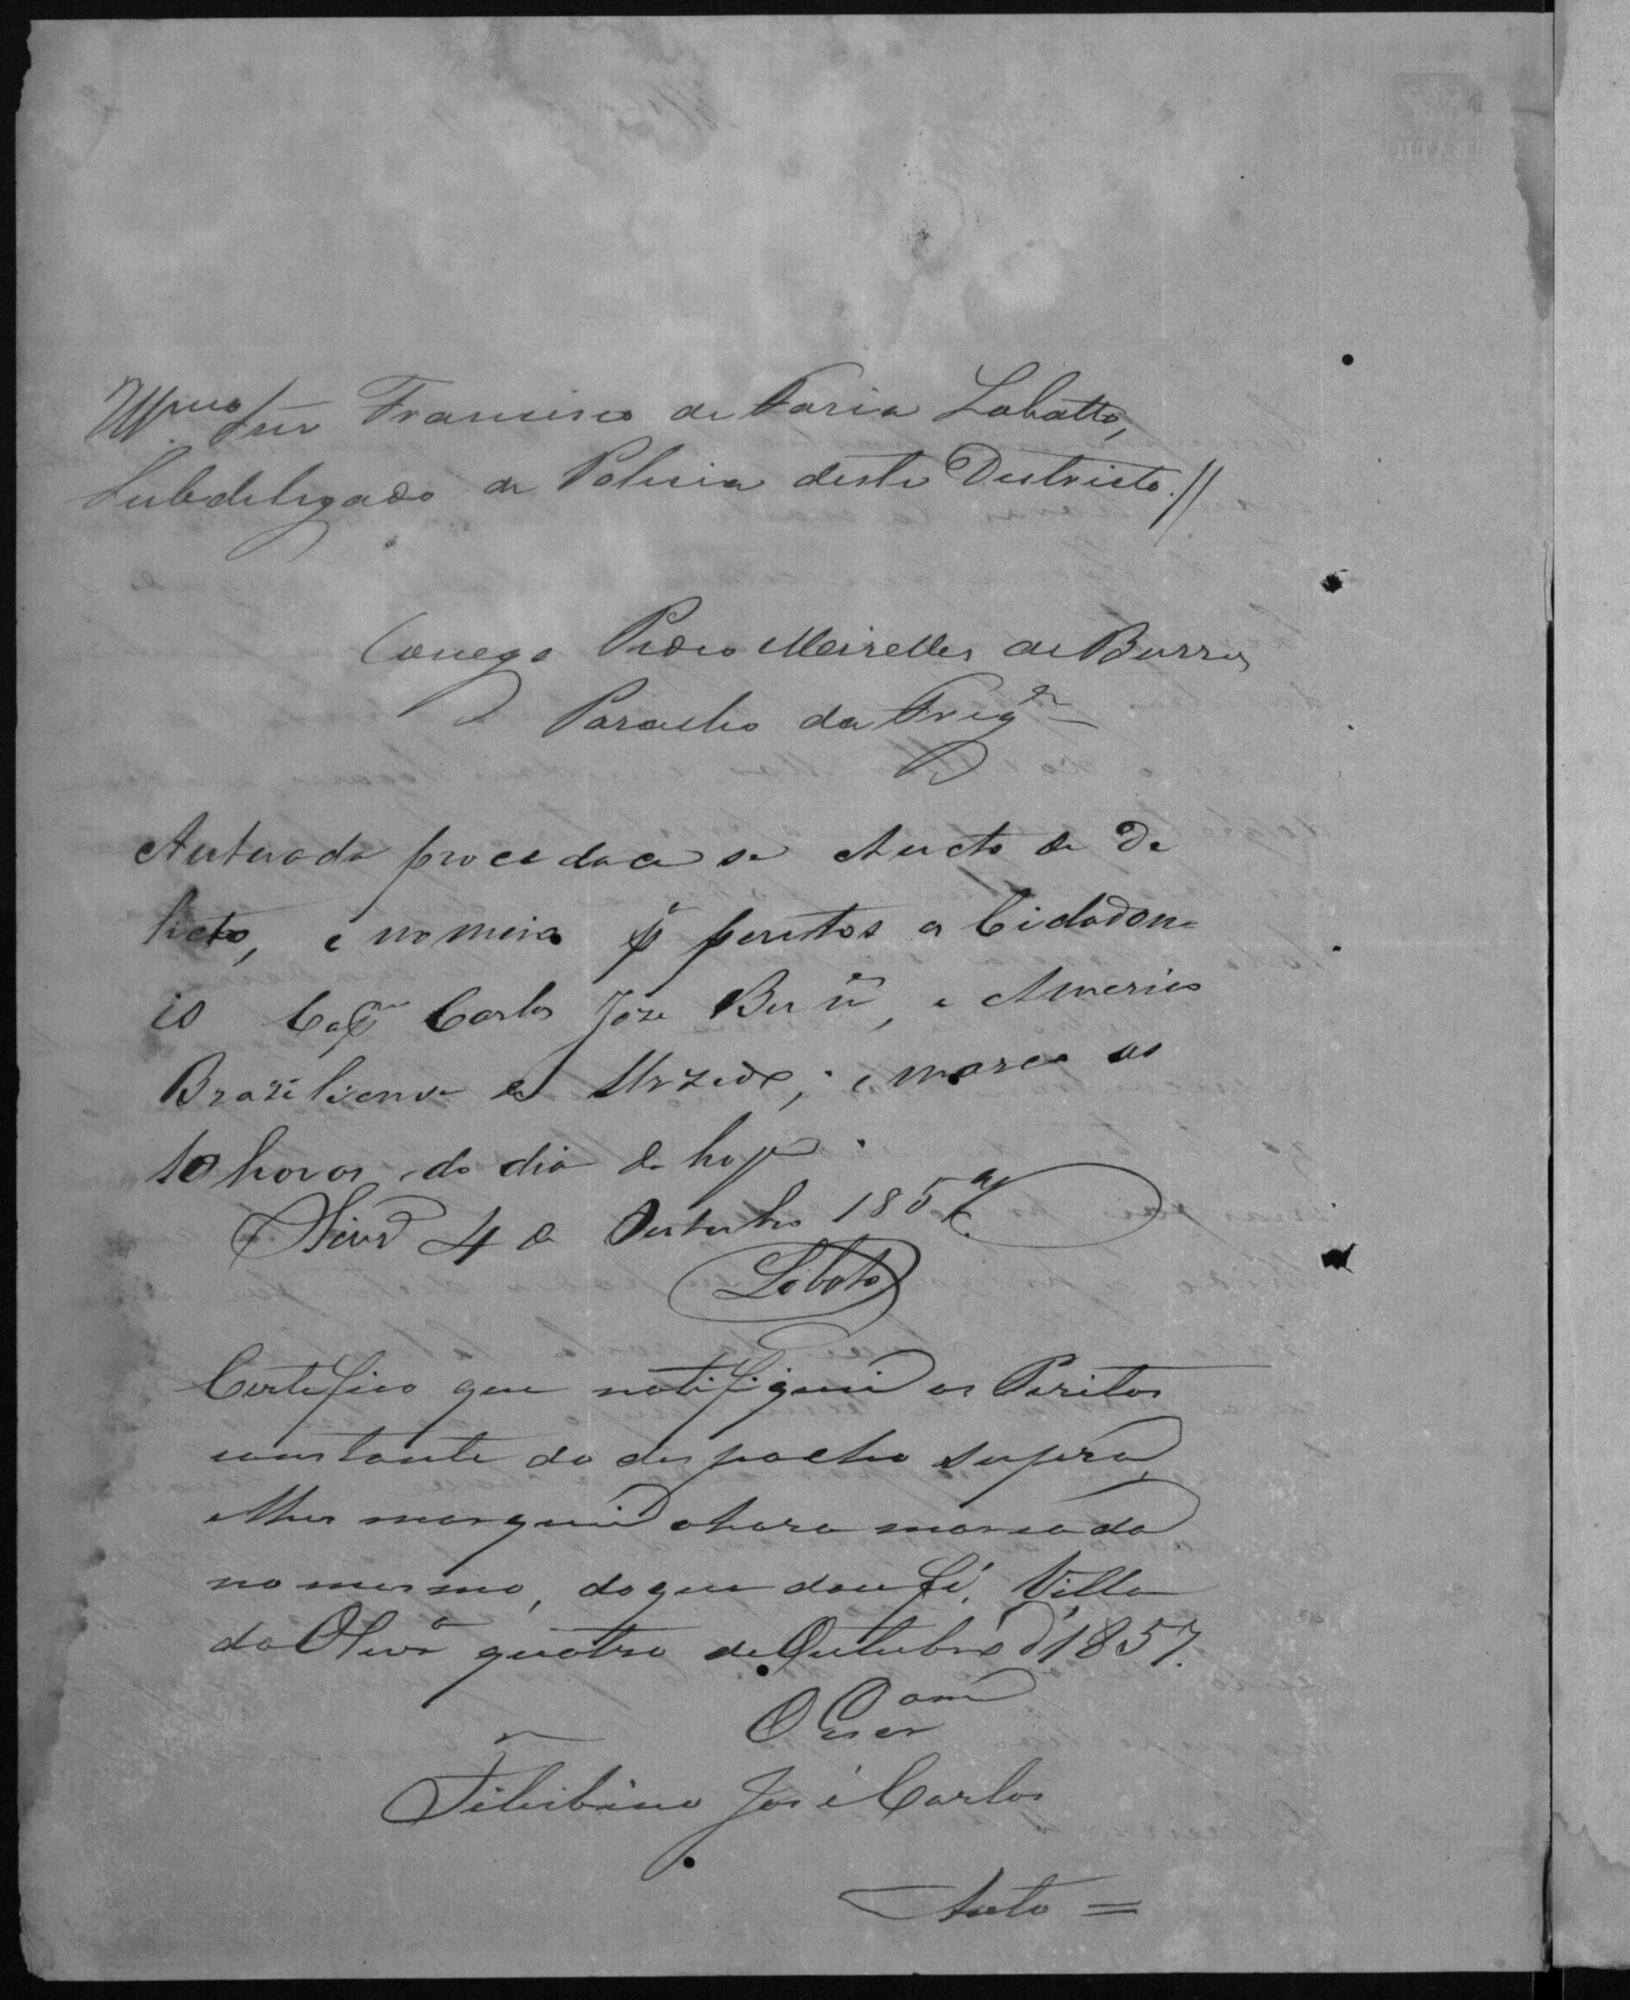 Illmo Snr Francisco de Faria Lobatto,
Subdelegado de Policia deste Destricto.//
Conego Pedro Meirelles de Barros
Parocho da Fregª
Autuada proceda ce se Aucto de De
licto, e nomeio pª peritos os Cidadon-
is Capm Carlos Joze e Americo
Braziliense de ; e marco as
10 horas do dia de hoje.
Olivª 4 de Outubro 1857.
Lobato
Certifico que notifiquei os Peritos
constante do despacho supra,
elhes marquei ahora marcada
no mesmo, do que dou fé. Villa
da Olivª quatro de Outubro d'1857.
O Escram
José Carlos
Auto =